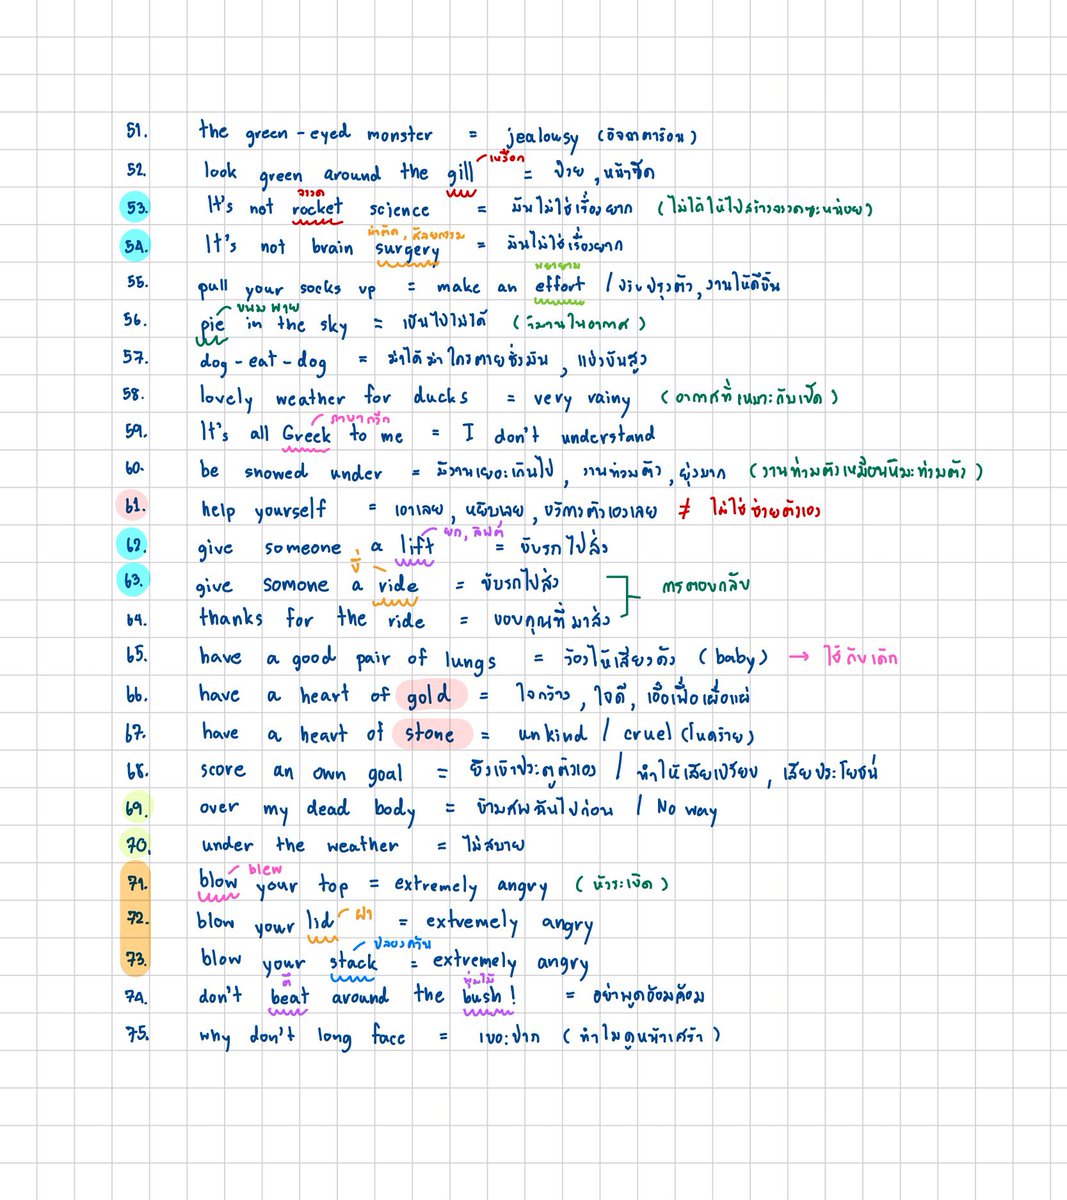 51. the green-eyed monster = jealousy (อิจฉาตาร้อน)
52. look green around the gill เหงือก = ป่วย, หน้าซีด
53. It's not rocket จรวด science = มันไม่ใช่เรื่องยาก (ไม่ได้ให้ไปสร้างจรวดซะหน่อย)
54. It's not brain surgery ผ่าตัด, ศัลยกรรม = มันไม่ใช่เรื่องยาก
55. pull your socks up = make an effort พยายาม / ปรับปรุงตัว, งานให้ดีขึ้น
56. pie ขนมพาย in the sky = เป็นไปไม่ได้ (วิมานในอากาศ)
57. dog-eat-dog = ฆ่าได้ฆ่า ใครตายช่างมัน, แข่งขันสูง
58. lovely weather for ducks = very rainy (อากาศที่เหมาะกับเป็ด)
59. It's all Greek ภาษากรีก to me = I don't understand
60. be snowed under = มีงานเยอะเกินไป, งานท่วมตัว, ยุ่งมาก (งานท่วมตัวเหมือนหิมะท่วมตัว)
61. help yourself = เอาเลย, หยิบเลย, บริการตัวเองเลย ≠ ไม่ใช่ช่วยตัวเอง
62. give someone a lift ยก, ลิฟต์ = ขับรถไปส่ง
63. give somone a ride ขี่ = ขับรถไปส่ง
การตอบกลับ
64. thanks for the ride = ขอบคุณที่มาส่ง
65. have a good pair of lungs = ร้องไห้เสียงดัง (baby) → ใช้กับเด็ก
66. have a heart of gold = ใจกว้าง, ใจดี, เอื้อเฟื้อเผื่อแผ่
67. have a heart of stone = unkind / cruel (โหดร้าย)
68. score an own goal = ยิงเข้าประตูตัวเอง / ทำให้เสียเปรียบ, เสียประโยชน์
69. over my dead body = ข้ามศพฉันไปก่อน / No way
70. under the weather = ไม่สบาย
71. blow blew your top = extremely angry (หัวระเบิด)
72. blow your lid ฝา = extremely angry
73. blow your stack ปล่องควัน = extremely angry
74. don't beat ตี around the bush! พุ่มไม้ = อย่าพูดอ้อมค้อม
75. why don't long face = เบะปาก (ทำไมดูหน้าเศร้า)